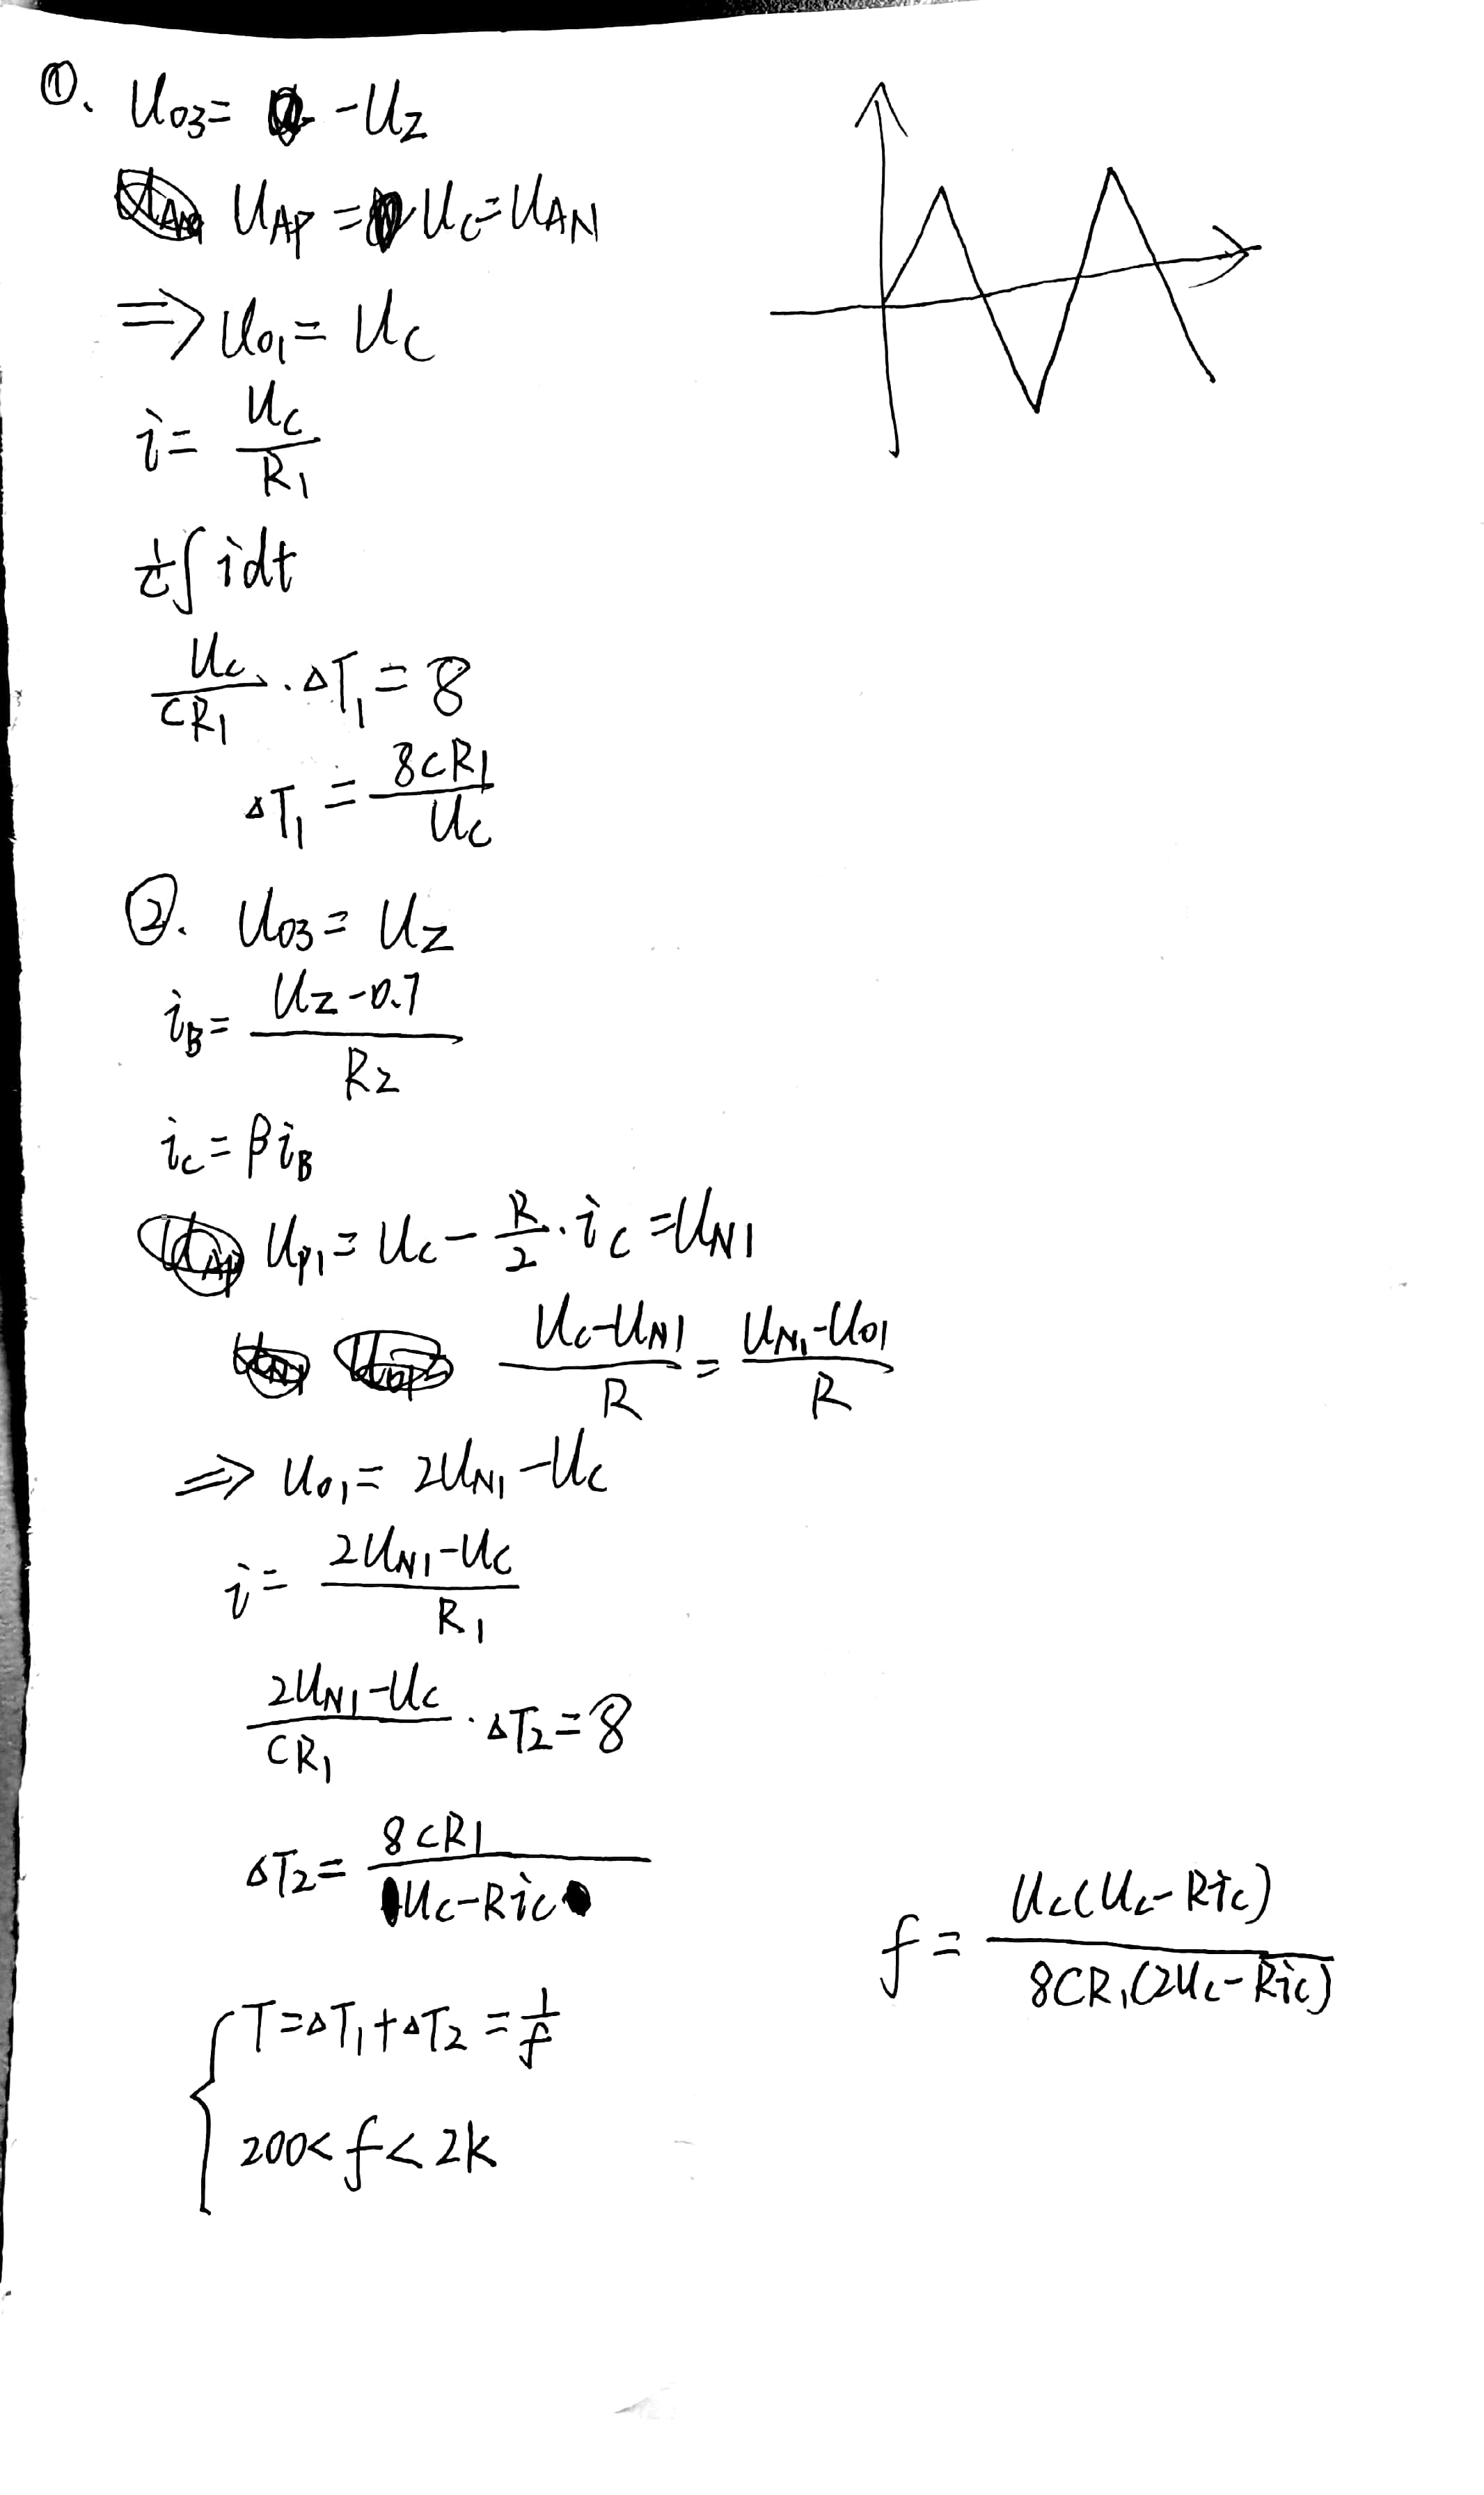 ①. U₀₃= -U_Z
U_AP = U_C = U_AN
⇒ U₀₁ = U_C
i = U_C / R₁
1/C ∫ i dt
U_C / CR₁ · ΔT₁ = 8
ΔT₁ = 8CR₁ / U_C
②. U₀₃ = U_Z
i_B = U_Z-0.7 / R₂
i_C = β i_B
U_P₁ = U_C - R/2 · i_C = U_N₁
U_C-U_N₁ / R = U_N₁-U₀₁ / R
⇒ U₀₁ = 2U_N₁ - U_C
i = 2U_N₁-U_C / R₁
2U_N₁-U_C / CR₁ · ΔT₂ = 8
ΔT₂ = 8CR₁ / U_C-Ri_C
f = U_C(U_C-Ri_C) / 8CR₁(2U_C-Ri_C)
T=ΔT₁+ΔT₂ = 1/f
200< f < 2k